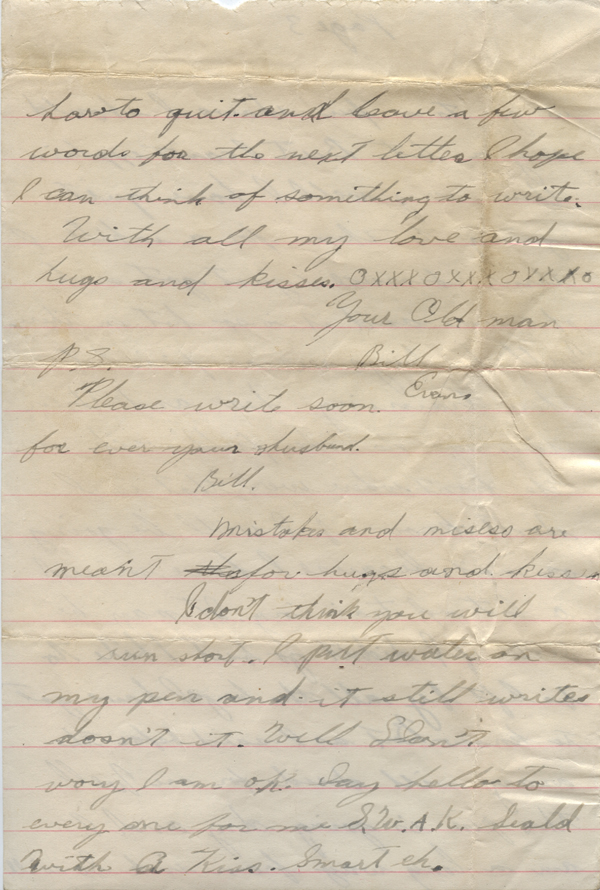 have to quit. and leave a few
words for the next letter I hope
I can think of something to write.
With all my love and
hugs and kisses. OXXXOXXXOXXXO
Your Old man
P.S. Bill
Please write soon. Evans
for ever your husband.
Bill.
Mistakes and are
meant for hugs and kisses
I don't think you will
run short. I put water on
my pen and it still writes
dosn't it. Well Don't
wory I am ok. Say hello to
every one for me S.W.A.K. Seald
with a Kiss. Smart eh.